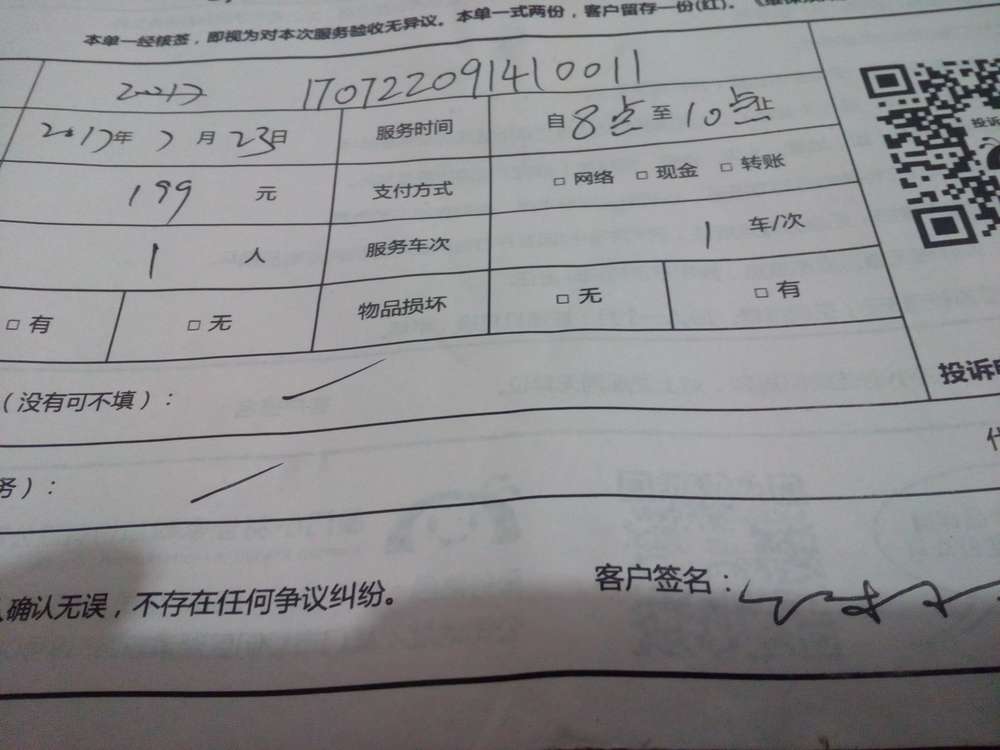 本单一经核签，即视为对本次服务验收无异议。本单一式两份，客户留存一份(红)。
170722091410011
2017年7月23日 服务时间 自8点至10点止
199 元 支付方式 □ 网络 □ 现金 □ 转账
1 人 服务车次 1 车/次
□ 有 □ 无 物品损坏 □ 无 □ 有
投诉
（没有可不填）：
投诉
务）：
确认无误，不存在任何争议纠纷。
客户签名：